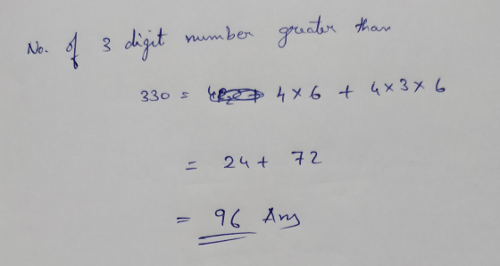 No. of 3 digit number greater than
330 = 4×6 + 4×3×6
= 24 + 72
= 96 Ans